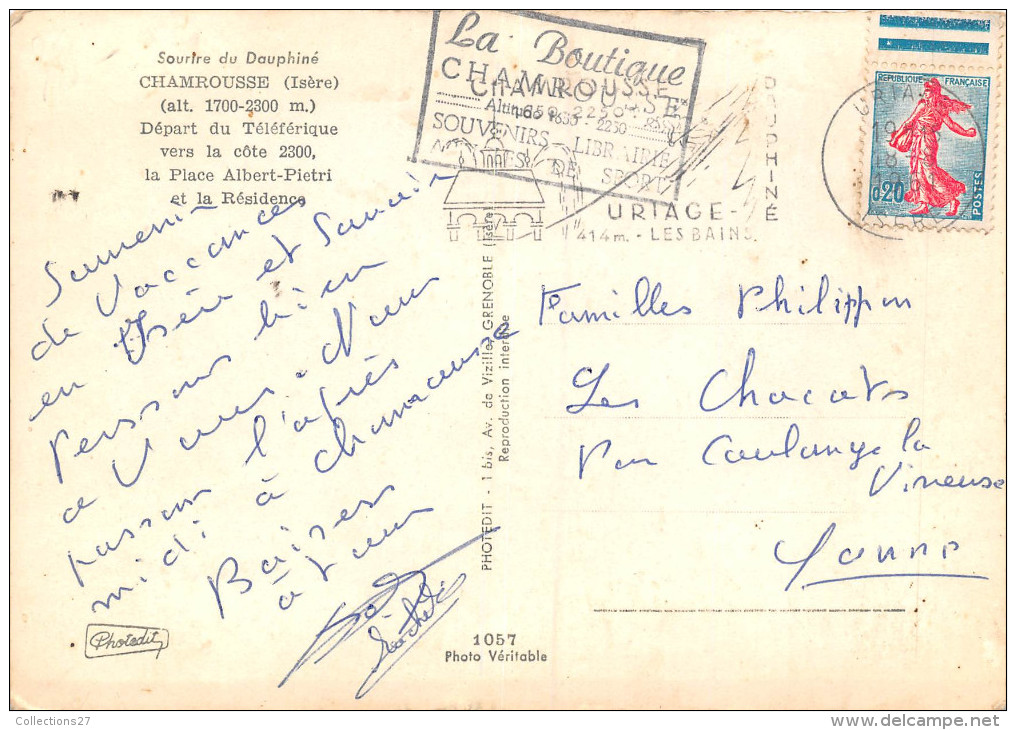 Sourire du Dauphiné
CHAMROUSSE (Isère)
(alt. 1700-2300 m.)
Départ du Téléférique
vers la côte 2300,
la Place Albert-Pietri
et la Résidence
La Boutique
CHAMROUSSE
CHAMROUSSE
Altitude 1650 - 2250
SOUVENIRS - LIBRAIRIE
DE SPORT
DAUPHINÉ
URIAGE-
414m. - LES BAINS
REPUBLIQUE FRANÇAISE
0,20
POSTES
ISERE
Souvenir
de Vaccances
en Isère et Savoie
Pensons bien
a Vous. Nous
passons l'après
midi à Chamrousse
Baisers
à tous
Familles Philippon
Les Chocats
Par Coulange la
Vineuse
Yonne
PHOTEDIT - 1 bis, Av. de Vizille, GRENOBLE (Isère)
Reproduction interdite
Photedit
1057
Photo Véritable
Collections27
delcampe.net